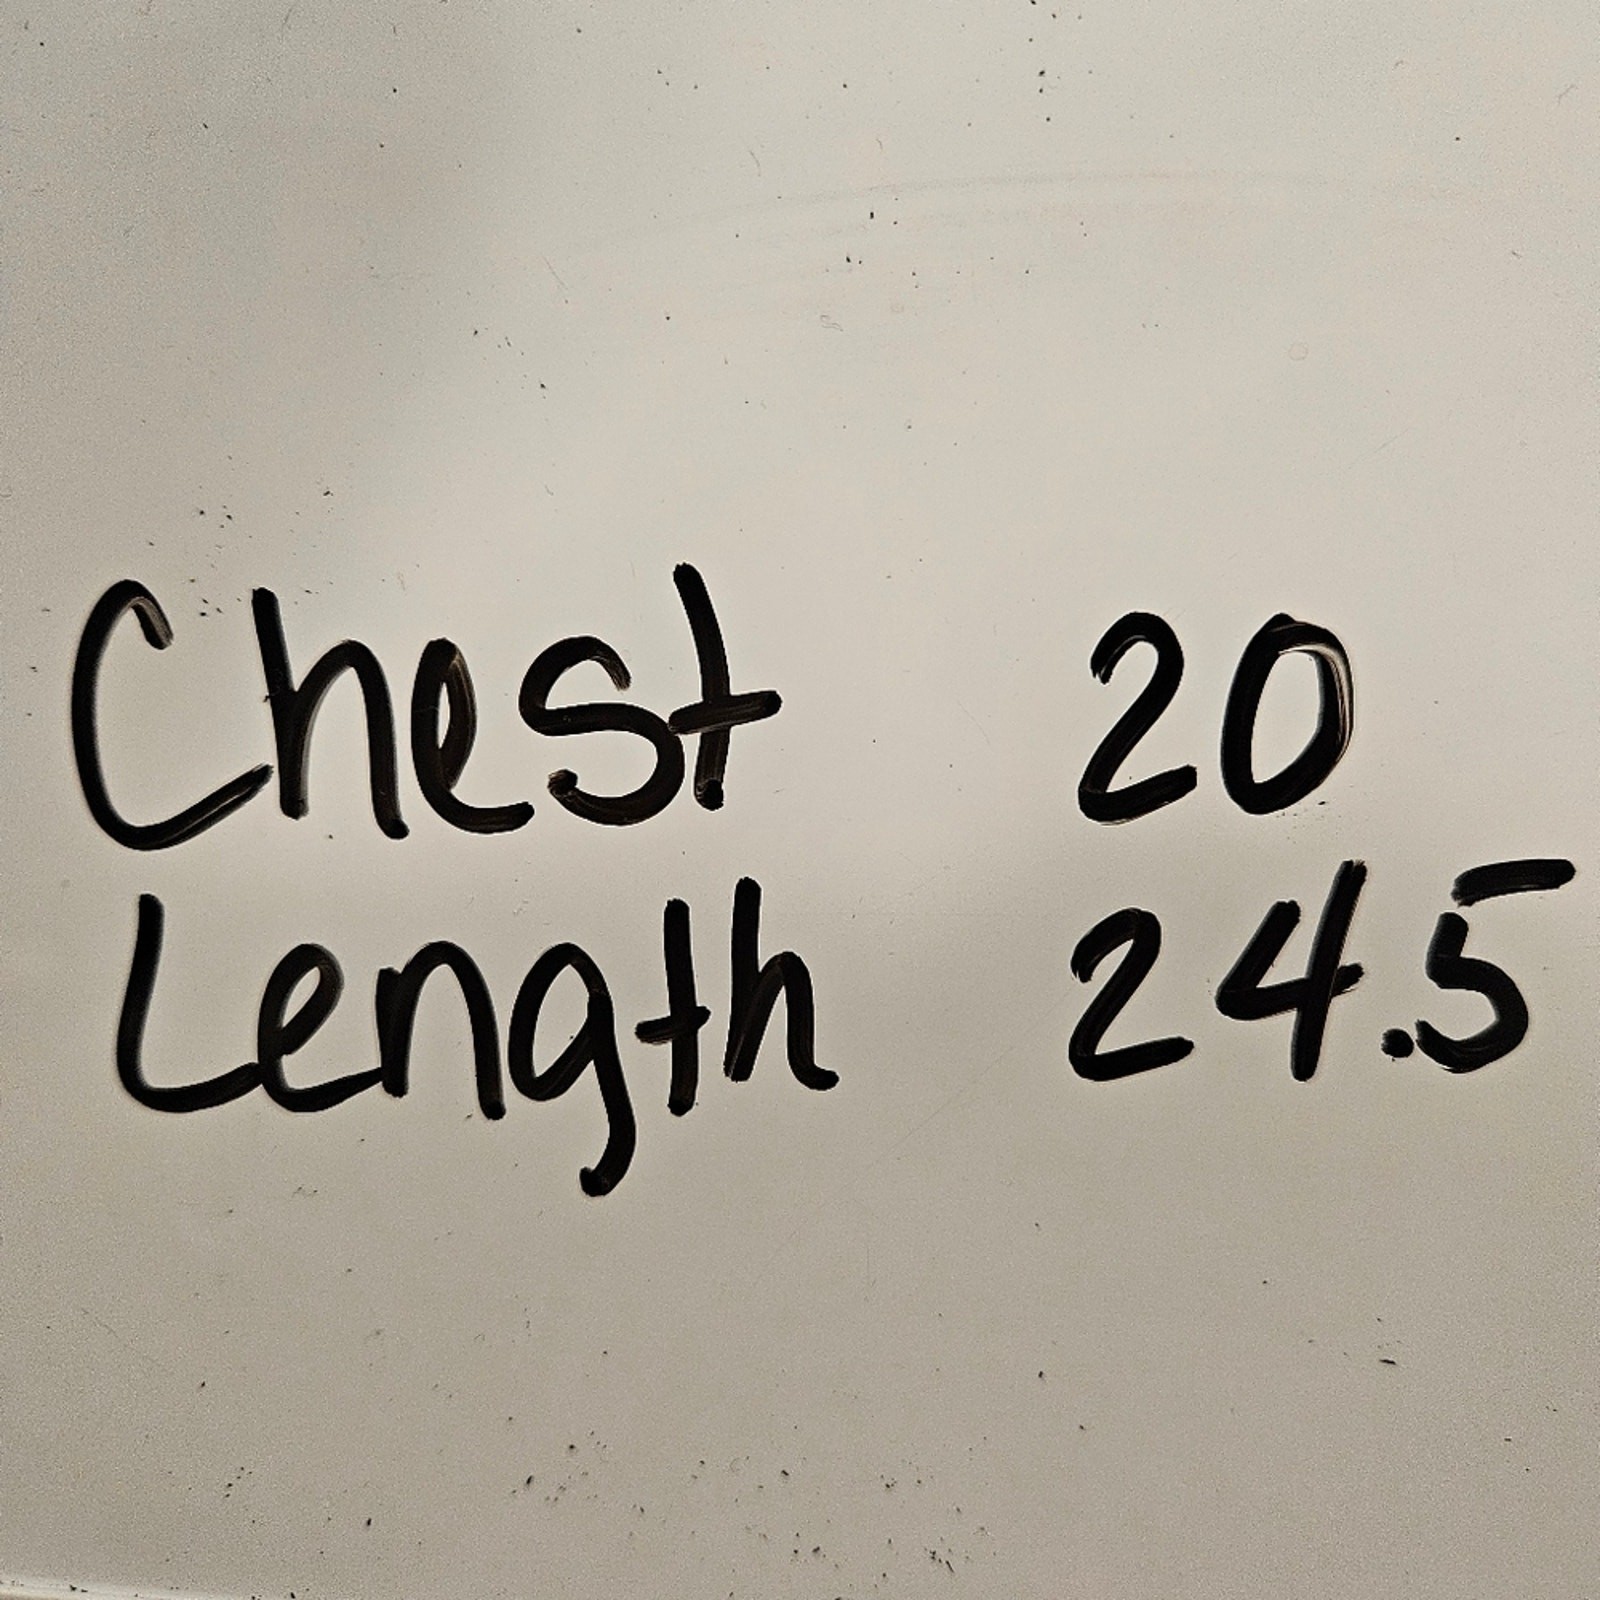 Chest 20
Length 24.5